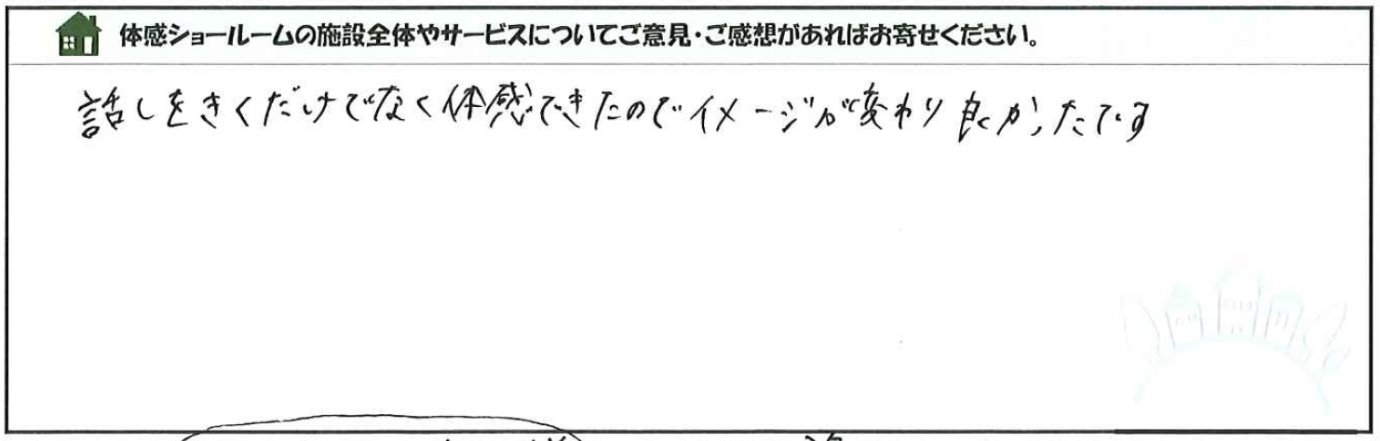 体感ショールームの施設全体やサービスについてご意見・ご感想があればお寄せください。
話しをきくだけでなく体感できたのでイメージが変わり良かったです